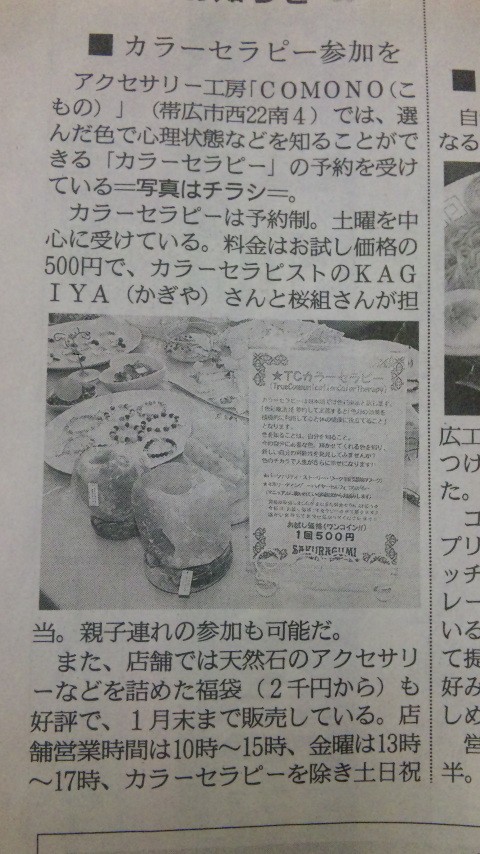 ■ カラーセラピー参加を
　アクセサリー工房「COMONO(こ
もの)」（帯広市西22南4）では、選
んだ色で心理状態などを知ることがで
きる「カラーセラピー」の予約を受け
ている＝写真はチラシ＝。
　カラーセラピーは予約制。土曜を中
心に受けている。料金はお試し価格の
500円で、カラーセラピストのKAG
IYA（かぎや）さんと桜組さんが担
★TCカラーセラピー
(TrueCommunicationColorTherapy)
となります。
お試し価格(ワンコイン!!)
1回500円
SAKURAGUMI
当。親子連れの参加も可能だ。
　また、店舗では天然石のアクセサリ
ーなどを詰めた福袋（2千円から）も
好評で、1月末まで販売している。店
舗営業時間は10時～15時、金曜は13時
～17時、カラーセラピーを除き土日祝
■
自
なる
広工
つけ
た。
プリ
ッチ
レー
いる
て提
好み
しめ
営
半。